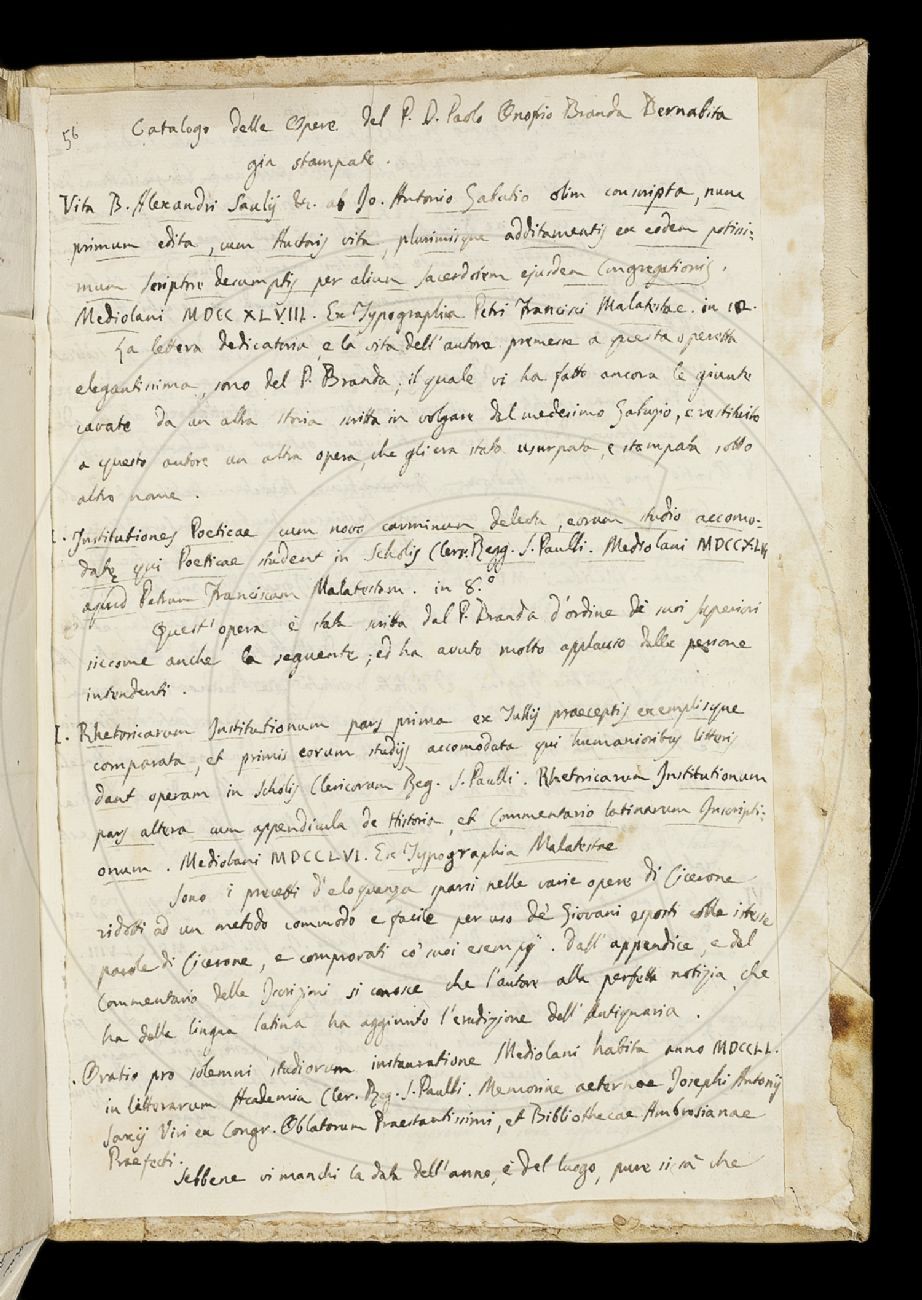 56 Catalogo delle Opere del P. D. Paolo Onofrio Branda Bernabita
gia stampate.
Vita B. Alexandri Saulij &c. ab Jo. Antonio Gabutio olim conscripta, nunc
primum edita, cum Auctoris vita, plurimisque additamentis ex eodem potissi-
mum scriptore decumptis per alium sacerdotem ejusdem Congregationis.
Mediolani MDCCXLVIII. Ex Typographia Petri Francisci Malatestae. in 12.
La lettera dedicatoria, e la vita dell'autore premesse a questa operetta
elegantissima, sono del P. Branda; il quale vi ha fatto ancora le giunte
cavate da un altra storia scritta in volgare dal medesimo Gabuzio, e restituito
a questo autore un altra opera, che gli era stata usurpata, e stampata sotto
altro nome.
Institutiones Poeticae cum novo carminum delectu, eorum studio accomo-
datae qui Poeticae student in Scholis Cler. Regg. S. Paulli. Mediolani
apud Petrum Franciscum Malatestam. in 8.º
Quest' opera è stata scritta dal P. Branda d'ordine de' suoi superiori
siccome anche la seguente; ed ha avuto molto applauso dalle persone
intendenti.
Rhetoricarum Institutionum pars prima ex Tullij praeceptis exemplisque
comparata, et primis eorum studijs accomodata qui humanioribus litteris
dant operam in Scholis Clericorum Reg. S. Paulli. Rhetoricarum Institutionum
pars altera cum appendicula de Historia, et Commentario latinarum Inscripti-
onum. Mediolani MDCCLVI. Ex Typographia Malatestae
Sono i precetti d'eloquenza sparsi nelle varie opere di Cicerone
ridotti ad un metodo commodo e facile per uso de' Giovani esposti colle istesse
parole di Cicerone, e comprovati co' suoi esempj. Dall'appendice, e dal
Commentario delle Iscrizioni si conosce che l'autore alla perfetta notizia, che
ha della lingua latina ha aggiunto l'erudizione dell'Antiquaria.
Oratio pro solemni studiorum instauratione Mediolani habita anno MDCCLL.
in litterarum Academia Cler. Reg. S. Paulli. Memoriae aeternae Josephi Antonij
Saxij Viri ex Congr. Oblatorum Praestantissimi, et Bibliothecae Ambrosianae
Praefecti.
Sebbene vi manchi la data dell'anno, e del luogo, pure si sà che